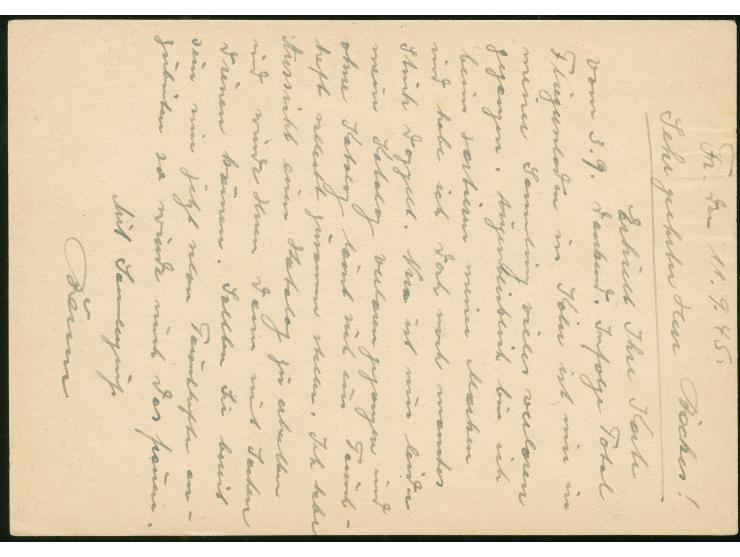 Fr. den 11.9.45.
Sehr geehrter Herr Böckes!
Erhielt Ihre Karte
vom 3.9. dankend. Infolge Total
Fliegerschaden in Köln ist mir in
meiner Samlung vieles verloren
gegangen. Augenblicklich bin ich
beim sortieren meiner Marken
und habe ich doch noch manches
Stück doppelt. Nur ist mir leider
mein Katalog verloren gegangen und
ohne Katalog lässt sich ein Tausch-
heft schlecht zusammen stellen. Ich habe
Aussicht einen Katalog zu erhalten
und würde Ihnen dann mit Sachen
dienen können. Sollten Sie bereit
sein mir jetzt schon Tauschhefte an-
zubieten so würde mich das freuen.
Mit Sammlergruß